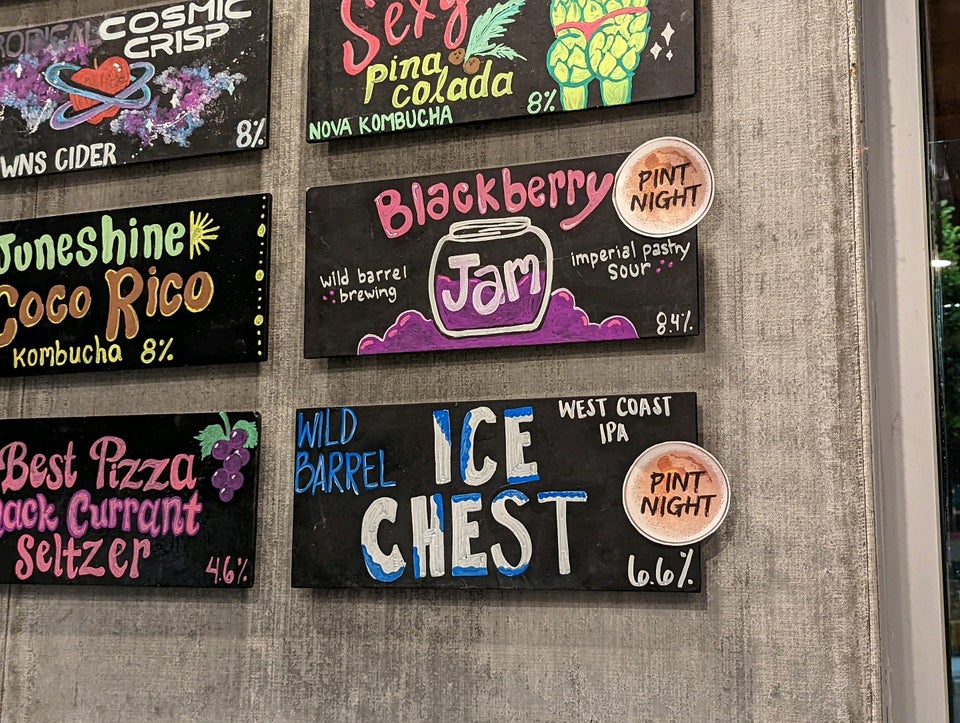 COSMIC
CRISP
8%
WNS CIDER
Sexy
pina
colada
NOVA KOMBUCHA 8%
Juneshine
Coco Rico
Kombucha 8%
Blackberry
Jam
wild barrel
brewing
imperial pastry
sour
8.4%
PINT
NIGHT
Best Pizza
Currant
Seltzer
4.6%
WILD
BARREL
ICE
CHEST
WEST COAST
IPA
PINT
NIGHT
6.6%